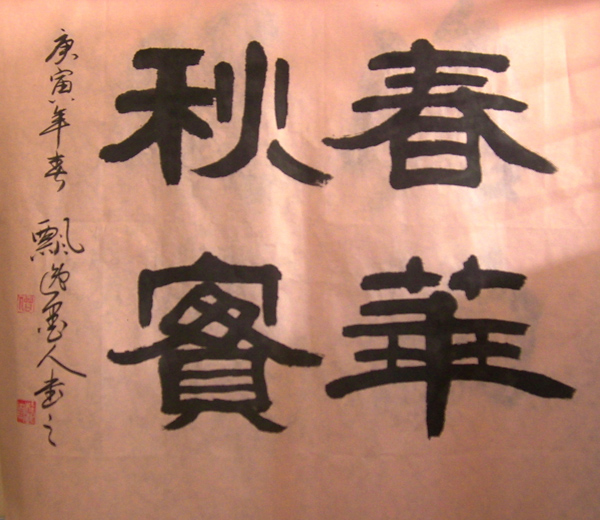 春華
秋實
庚寅年春
飄逸墨人書之